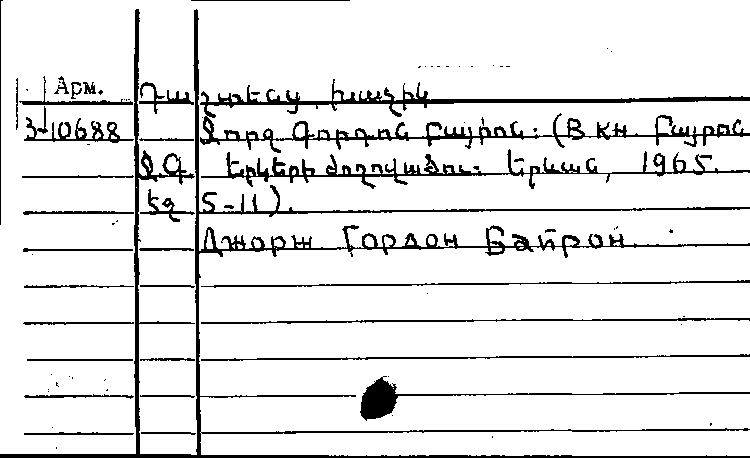 Арм. Դաշտենց, Խաչիկ
3-10688 Ջորջ Գորդոն Բայրոն: (В кн. Բայրոն
Ջ.Գ. Երկերի ժողովածու: Երևան, 1965.
էջ 5-11).
Джорж Гордон Байрон.